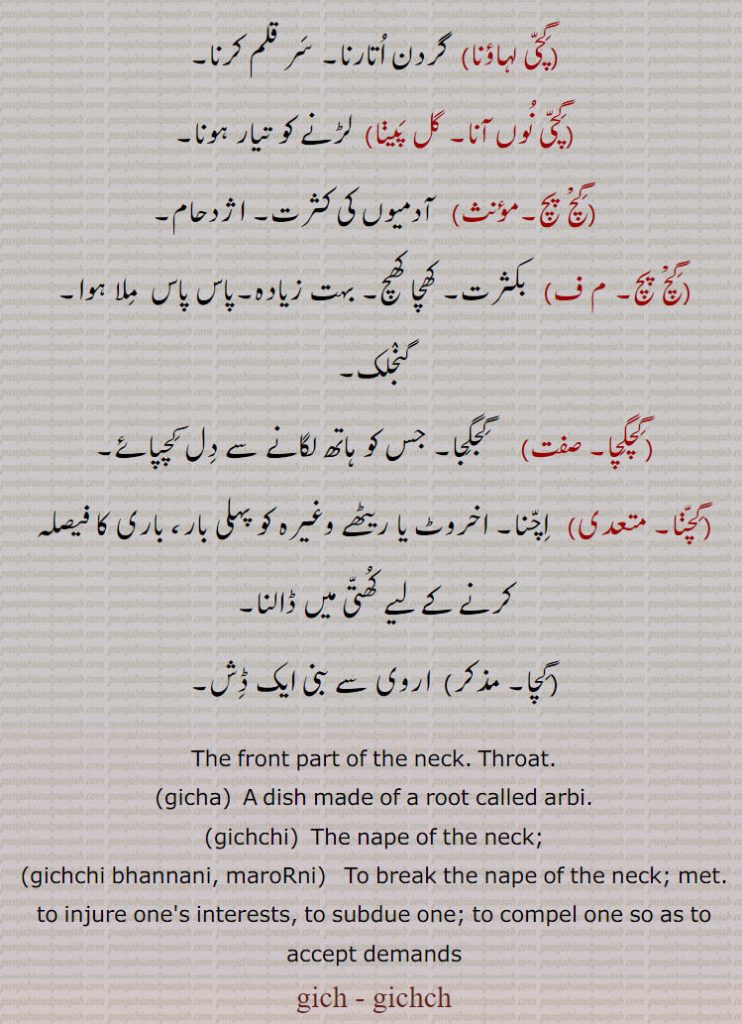 (گِچّی لہاؤنا) گردن اُتارنا۔ سَر قلم کرنا۔
(گِچّی نُوں آنا۔ گل پَینݨا) لڑنے کو تیار ہونا۔
(گِچْ پِچ۔مؤنث) آدمیوں کی کثرت۔ اژدحام۔
(گِچْ پِچ۔ م ف) بکثرت۔ کھچا کھچ۔ بہت زیادہ۔پاس پاس مِلا ہوا۔
گنجْلک۔
(گِچگِچا۔ صفت) گِجگِجا۔ جس کو ہاتھ لگانے سے دِل کِچپچائے۔
(گِچّݨا۔ متعدی) اِچّنا۔ اخروٹ یا ریٹھے وغیرہ کو پہلی بار، باری کا فیصلہ
کرنے کے لیے کُھتّی میں ڈالنا۔
(گِچا۔ مذکر) اروی سے بنی ایک ڈِش۔
The front part of the neck. Throat.
(gicha) A dish made of a root called arbi.
(gichchi) The nape of the neck;
(gichchi bhannani, maroRni) To break the nape of the neck; met.
to injure one's interests, to subdue one; to compel one so as to
accept demands
gich - gichch